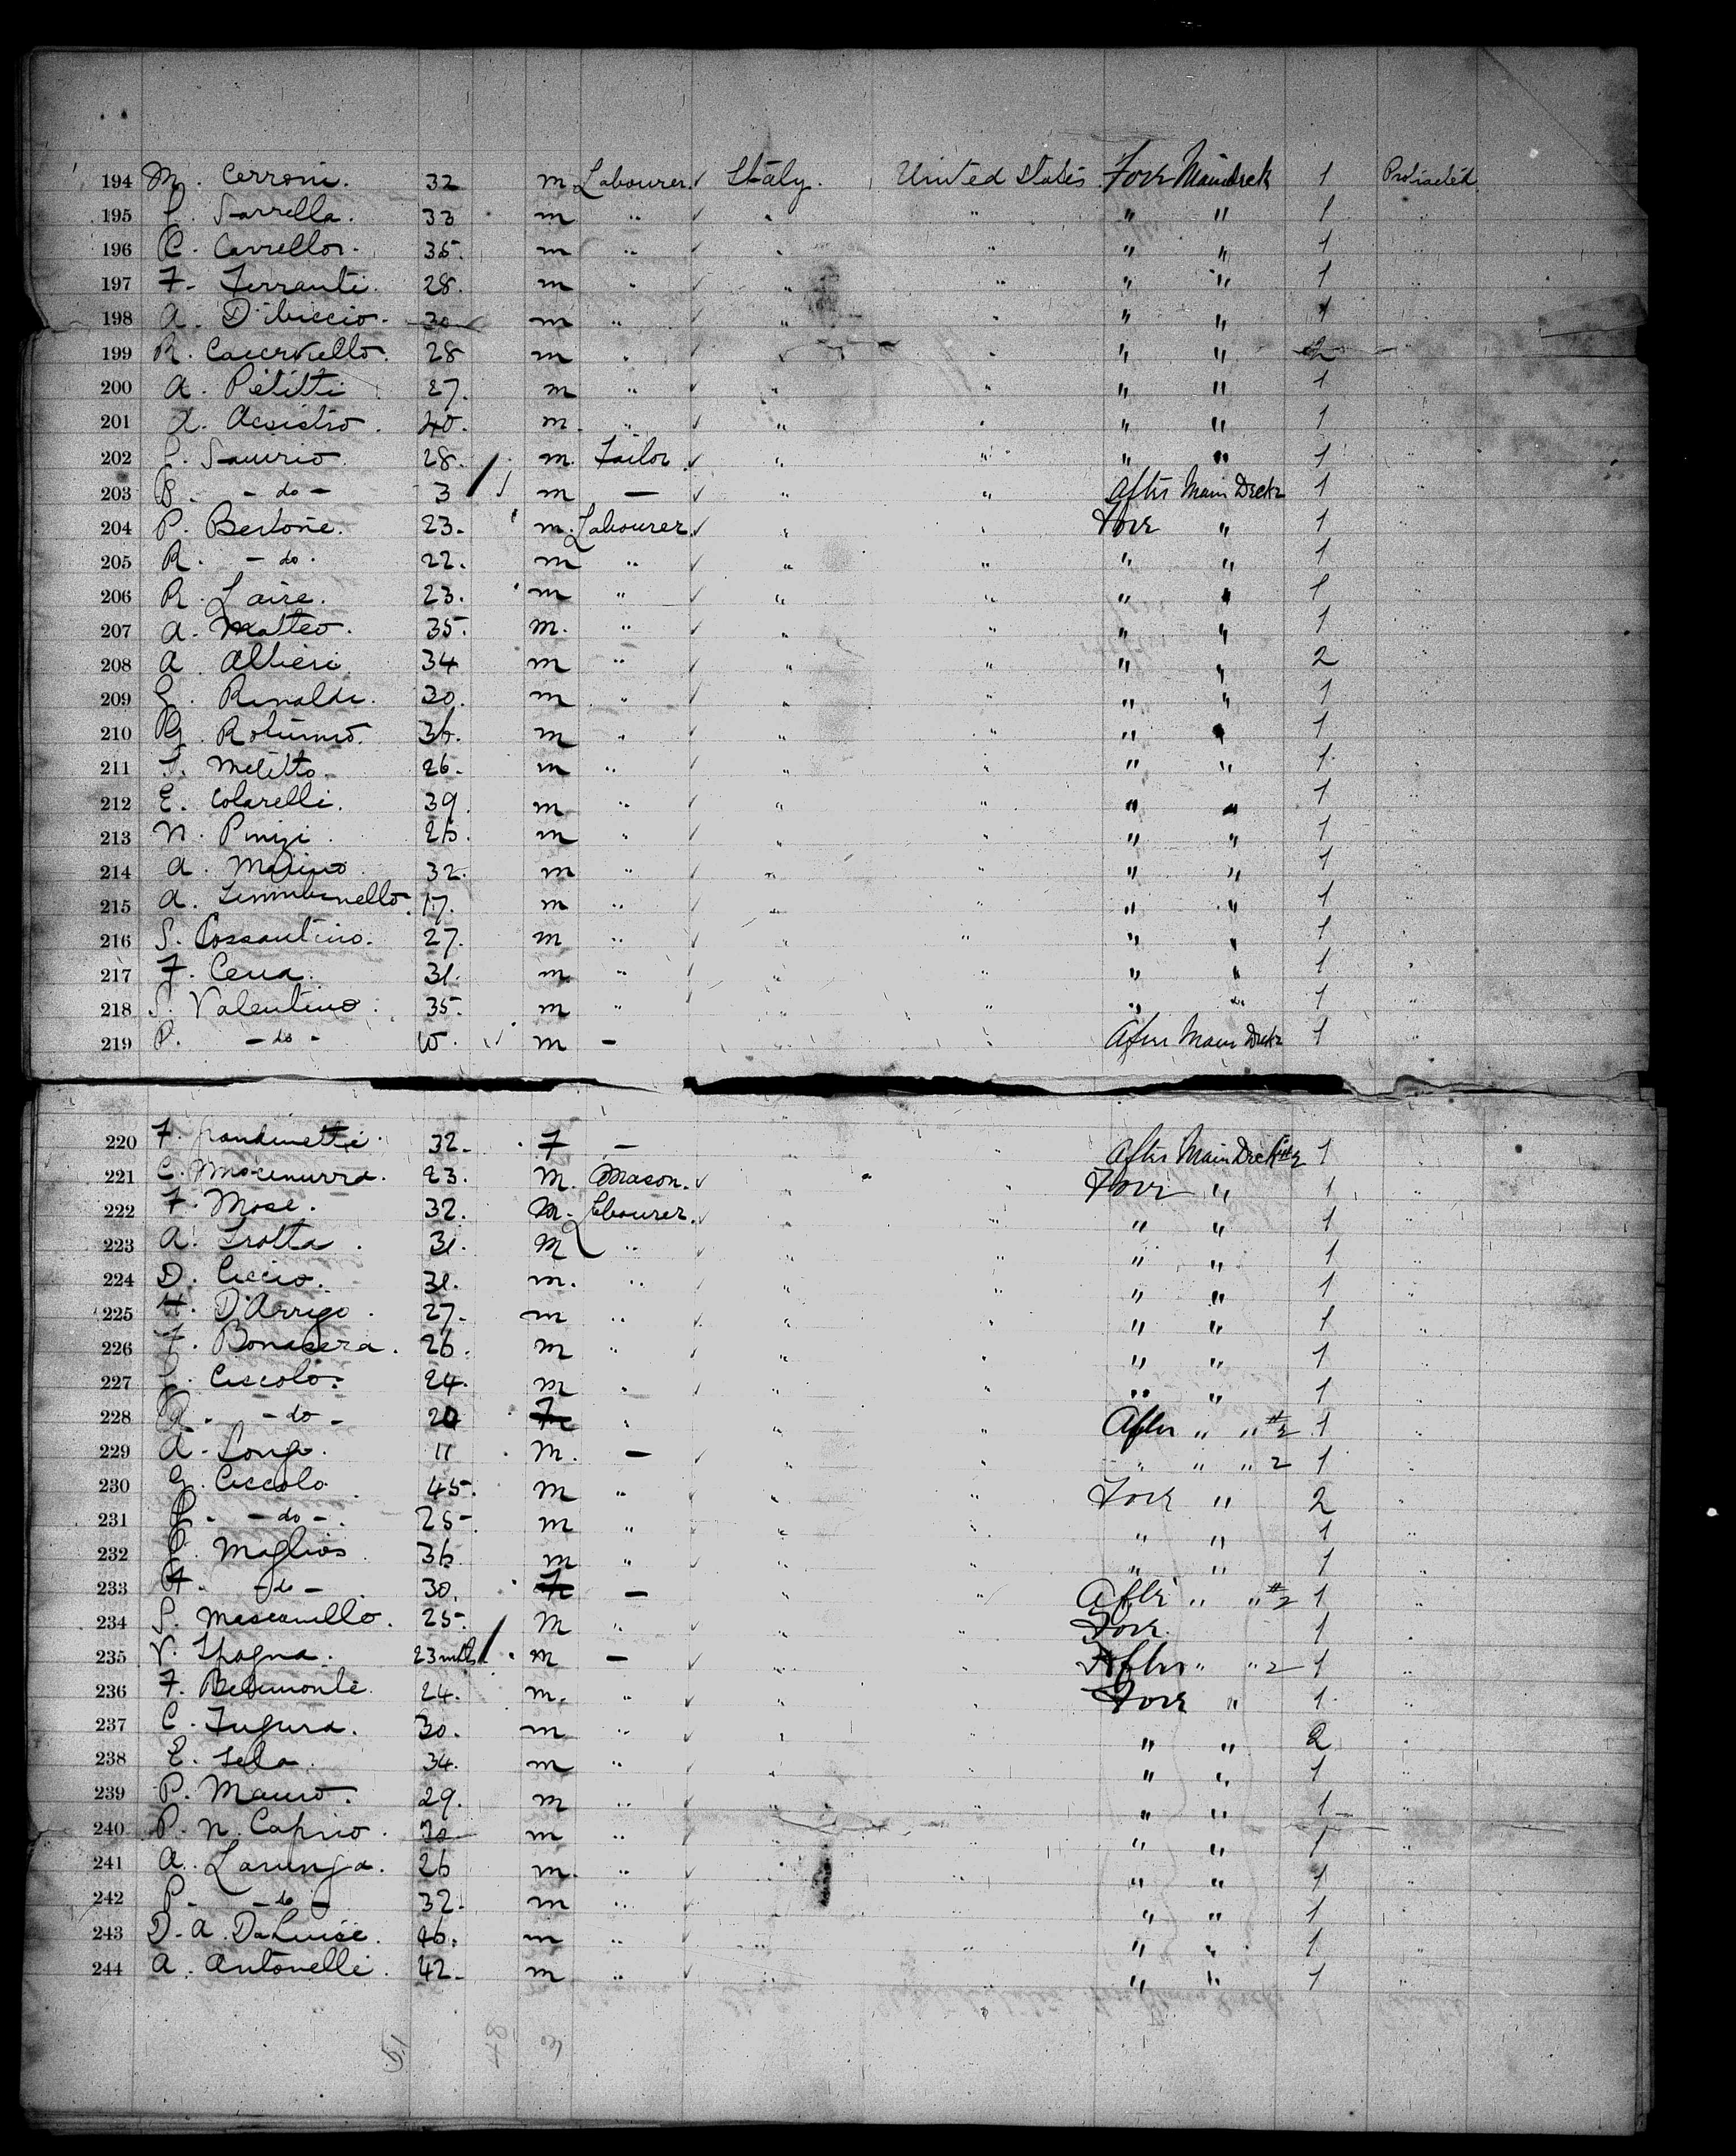 194 M. Cerroni. 32 m Labourer. ✓ Italy. United States Forr Main Deck 1 Protracted
195 Sarrella. 33 m " ✓ " " " " 1 "
196 C. Carrellor. 35. m " ✓ " " " " 1 "
197 F. Ferranti. 28. m " ✓ " " " " 1 "
198 A. D'ibiccio. 30 m " ✓ " " " " 1 "
199 R. 28 m " ✓ " " " 2 "
200 A. Petitti 27. m " ✓ " " " " 1 "
201 40. m. " ✓ " " " " 1 "
202 28. m. Tailor ✓ " " " " 1 "
203 B. - do - 3 m — ✓ " " After Main Deck 1 "
204 P. Bertone. 23. m. Labourer ✓ " " Forr " 1 "
205 R. - do. 22. m " ✓ " " " " 1 "
206 R. Laire. 23. m " ✓ " " " " 1 "
207 A. Matteo. 35. m. " ✓ " " " " 1 "
208 A. Altieri 34 m " ✓ " " " " 2 "
209 Rinaldi. 30. m " ✓ " " " " 1 "
210 36. m " ✓ " " " " 1 "
211 Melitto. 26. m " ✓ " " " " 1 "
212 E. Colarelli. 39. m " ✓ " " " " 1 "
213 N. 26. m " ✓ " " " " 1 "
214 A. Marino 32. m " ✓ " " " " 1 "
215 A. 17. m " ✓ " " " " 1 "
216 S. Cossantino. 27. m " ✓ " " " " 1 "
217 F. Cena. 31. m " ✓ " " " " 1 "
218 S. Valentino. 35. m " ✓ " " " " 1 "
219 P. - do - m - After Main Deck 1 "
220 F. 32. F — " After Main Deck #2 1
221 C. 23. M. Mason. ✓ " " Forr " 1 "
222 F. Mose. 32. M. Labourer. ✓ " " " 1 "
223 A. Trotta. 31. M " ✓ " " " " 1 "
224 D. Ciccio. 31. m. " ✓ " " " " 1 "
225 D'Arrigo. 27. m " ✓ " " " " 1 "
226 F. Bonasera. 26. m " ✓ " " " " 1 "
227 Ciscolo. 24. m " ✓ " " " " 1 "
228 - do - 20 F " " " After " " #2 1 "
229 A. Longo. 11 M. — ✓ " " " " " 2 1 "
230 G. Ciccolo 45. m " ✓ " " Forr " 2 "
231 - do -. 25. m " ✓ " " " " 1 "
232 Maglios 36 m " ✓ " " " " 1 "
233 - do - 30. F — " " After " " #2 1 "
234 S. 25. M " " " Forr. 1 "
235 V. Spagna. 23 mths m — ✓ " " After " " 2 1 "
236 F. Belmonte. 24. m. " ✓ " " Forr " 1 "
237 C. Fugura. 30. m " ✓ " " " " 2 "
238 E. Sela. 34. m " ✓ " " " " 1 "
239 P. Mauro. 29. m " ✓ " " " " 1 "
240 P. N. Caprio. 30 m " " " 1 "
241 A. Larunga. 26 m. " ✓ " " " " 1 "
242 P. - do - 32. m " ✓ " " " " 1 "
243 D. A. DaLuise. 46. m " ✓ " " " " 1 "
244 A. Antonelli. 42. m " ✓ " " " " 1 "